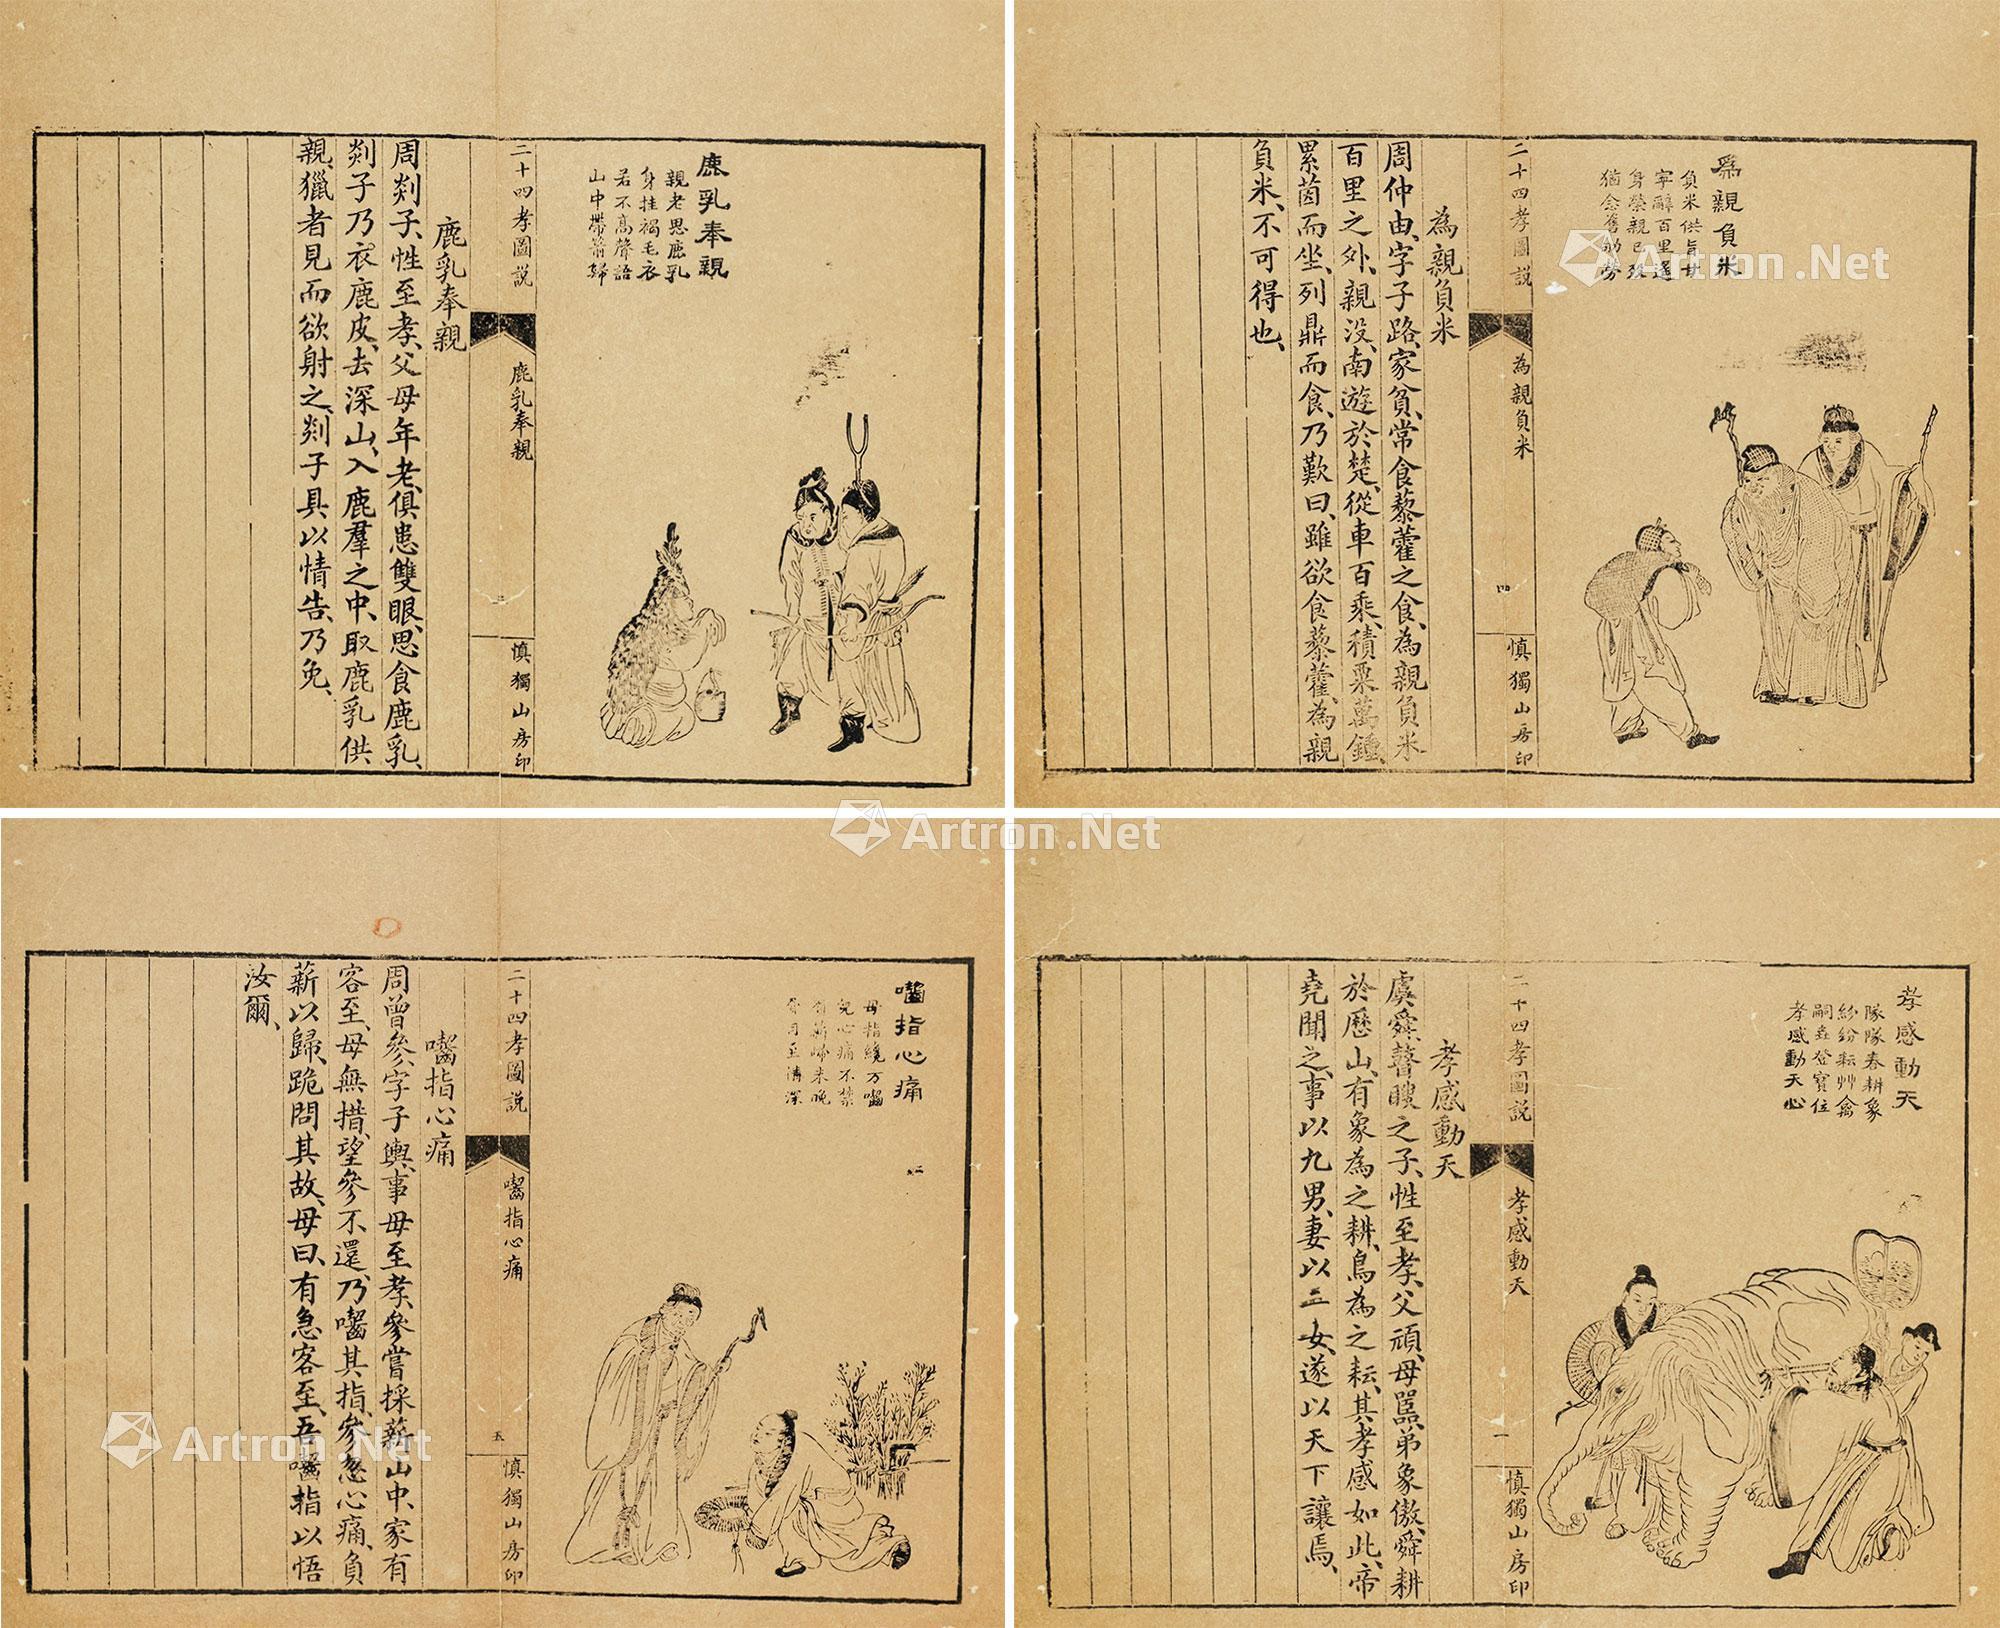 鹿乳奉親
親老思鹿乳
身挂褐毛衣
若不高聲語
山中帶箭歸
二十四孝圖説
鹿乳奉親
三
慎獨山房印
鹿乳奉親
周剡子、性至孝、父母年老、俱患雙眼、思食鹿乳、
剡子乃衣鹿皮、去深山、入鹿羣之中、取鹿乳供
親、獵者見而欲射之、剡子具以情告、乃免、
為親負米
負米供旨甘
寧辭百里遥
身榮親已没
猶念舊劬勞
二十四孝圖説
為親負米
四
慎獨山房印
為親負米
周仲由、字子路、家貧、常食藜藿之食、為親負米
百里之外、親没、南遊於楚、從車百乘、積粟萬鍾、
累茵而坐、列鼎而食、乃歎曰、雖欲食藜藿、為親
負米、不可得也、
嚙指心痛
母指纔方嚙
兒心痛不禁
負薪歸未晚
骨肉至情深
二十四孝圖説
嚙指心痛
五
慎獨山房印
嚙指心痛
周曾參、字子輿、事母至孝、參嘗採薪山中、家有
客至、母無措、望參不還、乃嚙其指、參忽心痛、負
薪以歸、跪問其故、母曰、有急客至、吾嚙指以悟
汝爾、
孝感動天
隊隊春耕象
紛紛耘艸禽
嗣堯登寶位
孝感動天心
二十四孝圖説
孝感動天
一
慎獨山房印
孝感動天
虞舜、瞽瞍之子、性至孝、父頑、母嚚、弟象傲、舜耕
於歷山、有象為之耕、鳥為之耘、其孝感如此、帝
堯聞之、事以九男、妻以二女、遂以天下讓焉、
Artron.Net
Artron.Net
Artron.Net